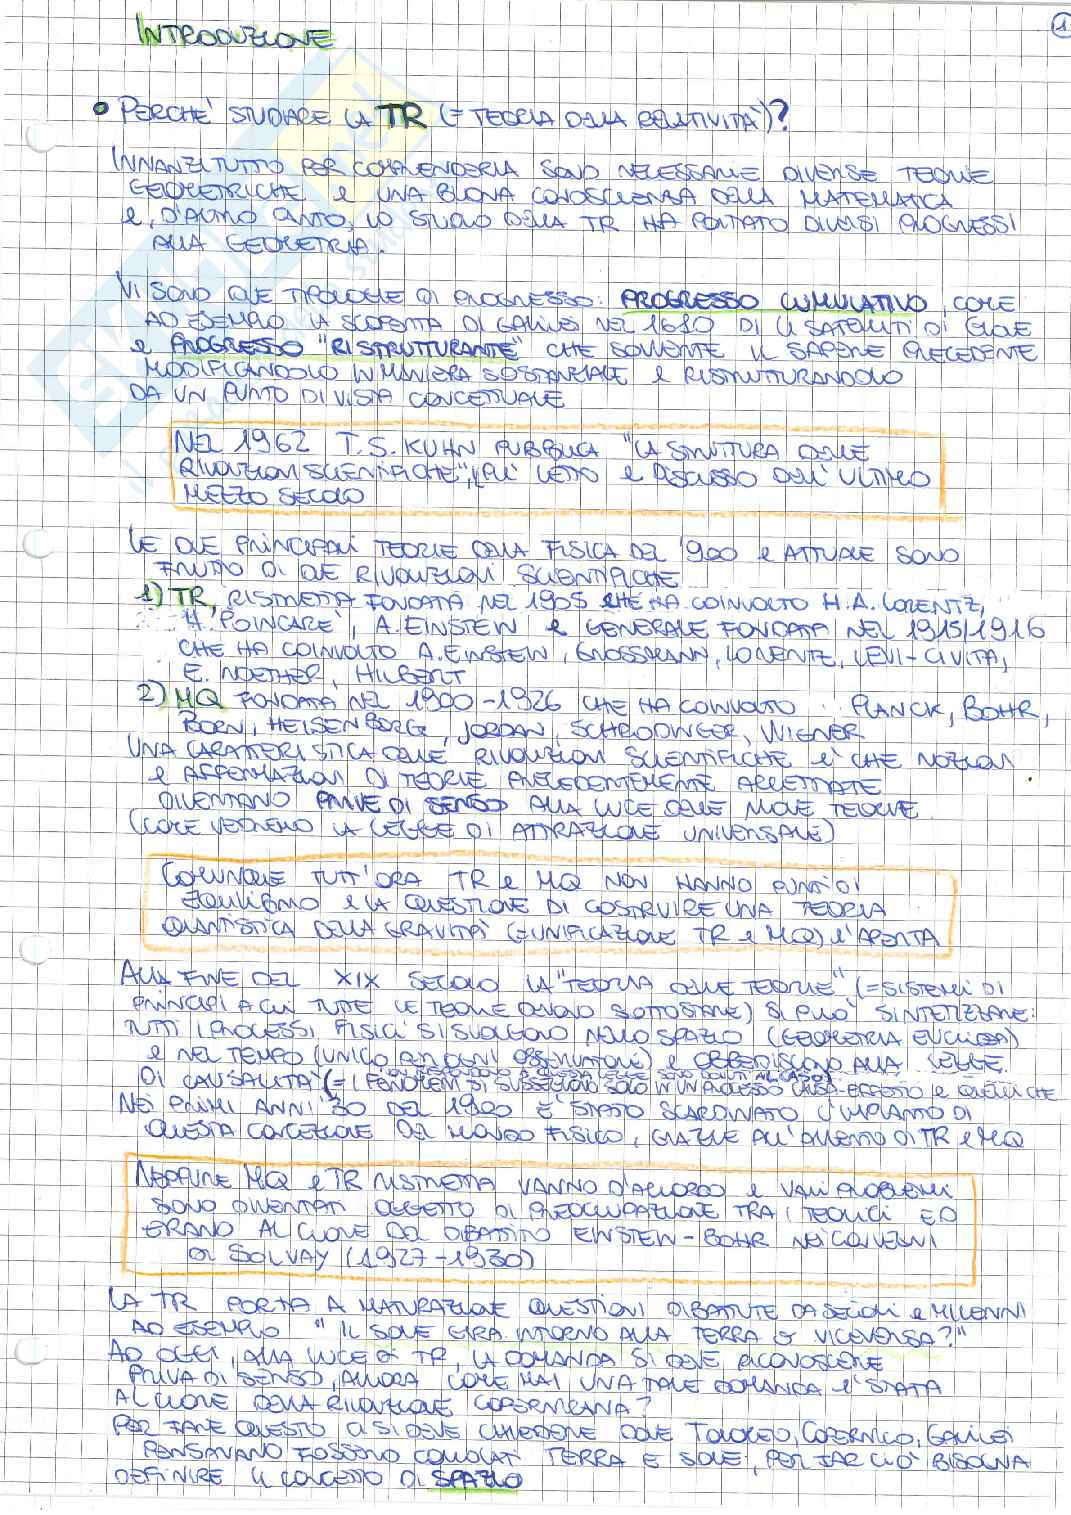 1
INTRODUZIONE
• PERCHE' STUDIARE LA TR (= TEORIA DELLA RELATIVITÀ)?
INNANZITUTTO PER COMPRENDERLA SONO NECESSARIE DIVERSE TEORIE
GEOMETRICHE E UNA BUONA CONOSCIENZA DELLA MATEMATICA
E, D'ALTRO CANTO, LO STUDIO DELLA TR HA PORTATO DIVERSI PROGRESSI
ALLA GEOMETRIA.
VI SONO DUE TIPOLOGIE DI PROGRESSO: PROGRESSO CUMULATIVO, COME
AD ESEMPIO LA SCOPERTA DI GALILEI NEL 1610 DI 4 SATELLITI DI GIOVE
E PROGRESSO "RISTRUTTURANTE" CHE SOVVERTE IL SAPERE PRECEDENTE
MODIFICANDOLO IN MANIERA SOSTANZIALE E RISTRUTTURANDOLO
DA UN PUNTO DI VISTA CONCETTUALE
NEL 1962 T.S. KUHN PUBBLICA "LA STRUTTURA DELLE
RIVOLUZIONI SCIENTIFICHE", (PIU' LETTO E DISCUSSO DELL'ULTIMO
MEZZO SECOLO
LE DUE PRINCIPALI TEORIE DELLA FISICA DEL '900 E ATTUALE SONO
FRUTTO DI DUE RIVOLUZIONI SCIENTIFICHE
1) TR, RISTRETTA FONDATA NEL 1905 CHE HA COINVOLTO H.A. LORENTZ,
H. POINCARE', A. EINSTEIN E GENERALE FONDATA NEL 1915/1916
CHE HA COINVOLTO A. EINSTEIN, GROSSMANN, LORENTZ, LEVI-CIVITA,
E. NOETHER, HILBERT
2) MQ FONDATA NEL 1900-1926 CHE HA COINVOLTO PLANCK, BOHR,
BORN, HEISENBERG, JORDAN, SCHRODINGER, WIGNER
UNA CARATTERISTICA DELLE RIVOLUZIONI SCIENTIFICHE E' CHE NOZIONI
E AFFERMAZIONI DI TEORIE PRECEDENTEMENTE ACCETTATE
DIVENTANO PRIVE DI SENSO ALLA LUCE DELLE NUOVE TEORIE.
(COME VEDREMO LA LEGGE DI ATTRAZIONE UNIVERSALE)
COMUNQUE TUTT'ORA TR E MQ NON HANNO PUNTI DI
EQUILIBRIO E LA QUESTIONE DI COSTRUIRE UNA TEORIA
QUANTISTICA DELLA GRAVITÀ (= UNIFICAZIONE TR E MQ) E' APERTA
ALLA FINE DEL XIX SECOLO LA "TEORIA DELLE TEORIE" (= SISTEMI DI
PRINCIPI A CUI TUTTE LE TEORIE DEVONO SOTTOSTARE) SI PUO' SINTETIZZARE:
TUTTI I PROCESSI FISICI SI SVOLGONO NELLO SPAZIO (GEOMETRIA EUCLIDEA)
E NEL TEMPO (UNICO PER OGNI OSSERVATORE) E OBBEDISCONO ALLA LEGGE
DI CAUSALITA' (= I FENOMENI SI SUSSEGUONO SOLO IN UN PROCESSO CAUSA-EFFETTO E QUELLI CHE
NON RISPONDONO A QUESTA LEGGE SONO DOVUTI AL CASO).
NEI PRIMI ANNI '30 DEL 1900 E' STATO SCARDINATO L'IMPIANTO DI
QUESTA CONCEZIONE DEL MONDO FISICO, GRAZIE ALL'AVVENTO DI TR E MQ
NEPPURE MQ E TR RISTRETTA VANNO D'ACCORDO E VARI PROBLEMI
SONO DIVENTATI OGGETTO DI PREOCCUPAZIONE TRA I TEORICI ED
ERANO AL CUORE DEL DIBATTITO EINSTEIN-BOHR NEI CONVEGNI
DI SOLVAY (1927-1930)
LA TR PORTA A MATURAZIONE QUESTIONI DIBATTUTE DA SECOLI E MILLENNI
AD ESEMPIO "IL SOLE GIRA INTORNO ALLA TERRA O VICEVERSA?"
AD OGGI, ALLA LUCE DI TR, LA DOMANDA SI DEVE RICONOSCERE
PRIVA DI SENSO, ALLORA COME MAI UNA TALE DOMANDA E' STATA
AL CUORE DELLA RIVOLUZIONE COPERNICANA?
PER FARE QUESTO CI SI DEVE CHIEDERE DOVE TOLOMEO, COPERNICO, GALILEI
PENSAVANO FOSSERO COLLOCATI TERRA E SOLE, PER FAR CIO' BISOGNA
DEFINIRE IL CONCETTO DI SPAZIO